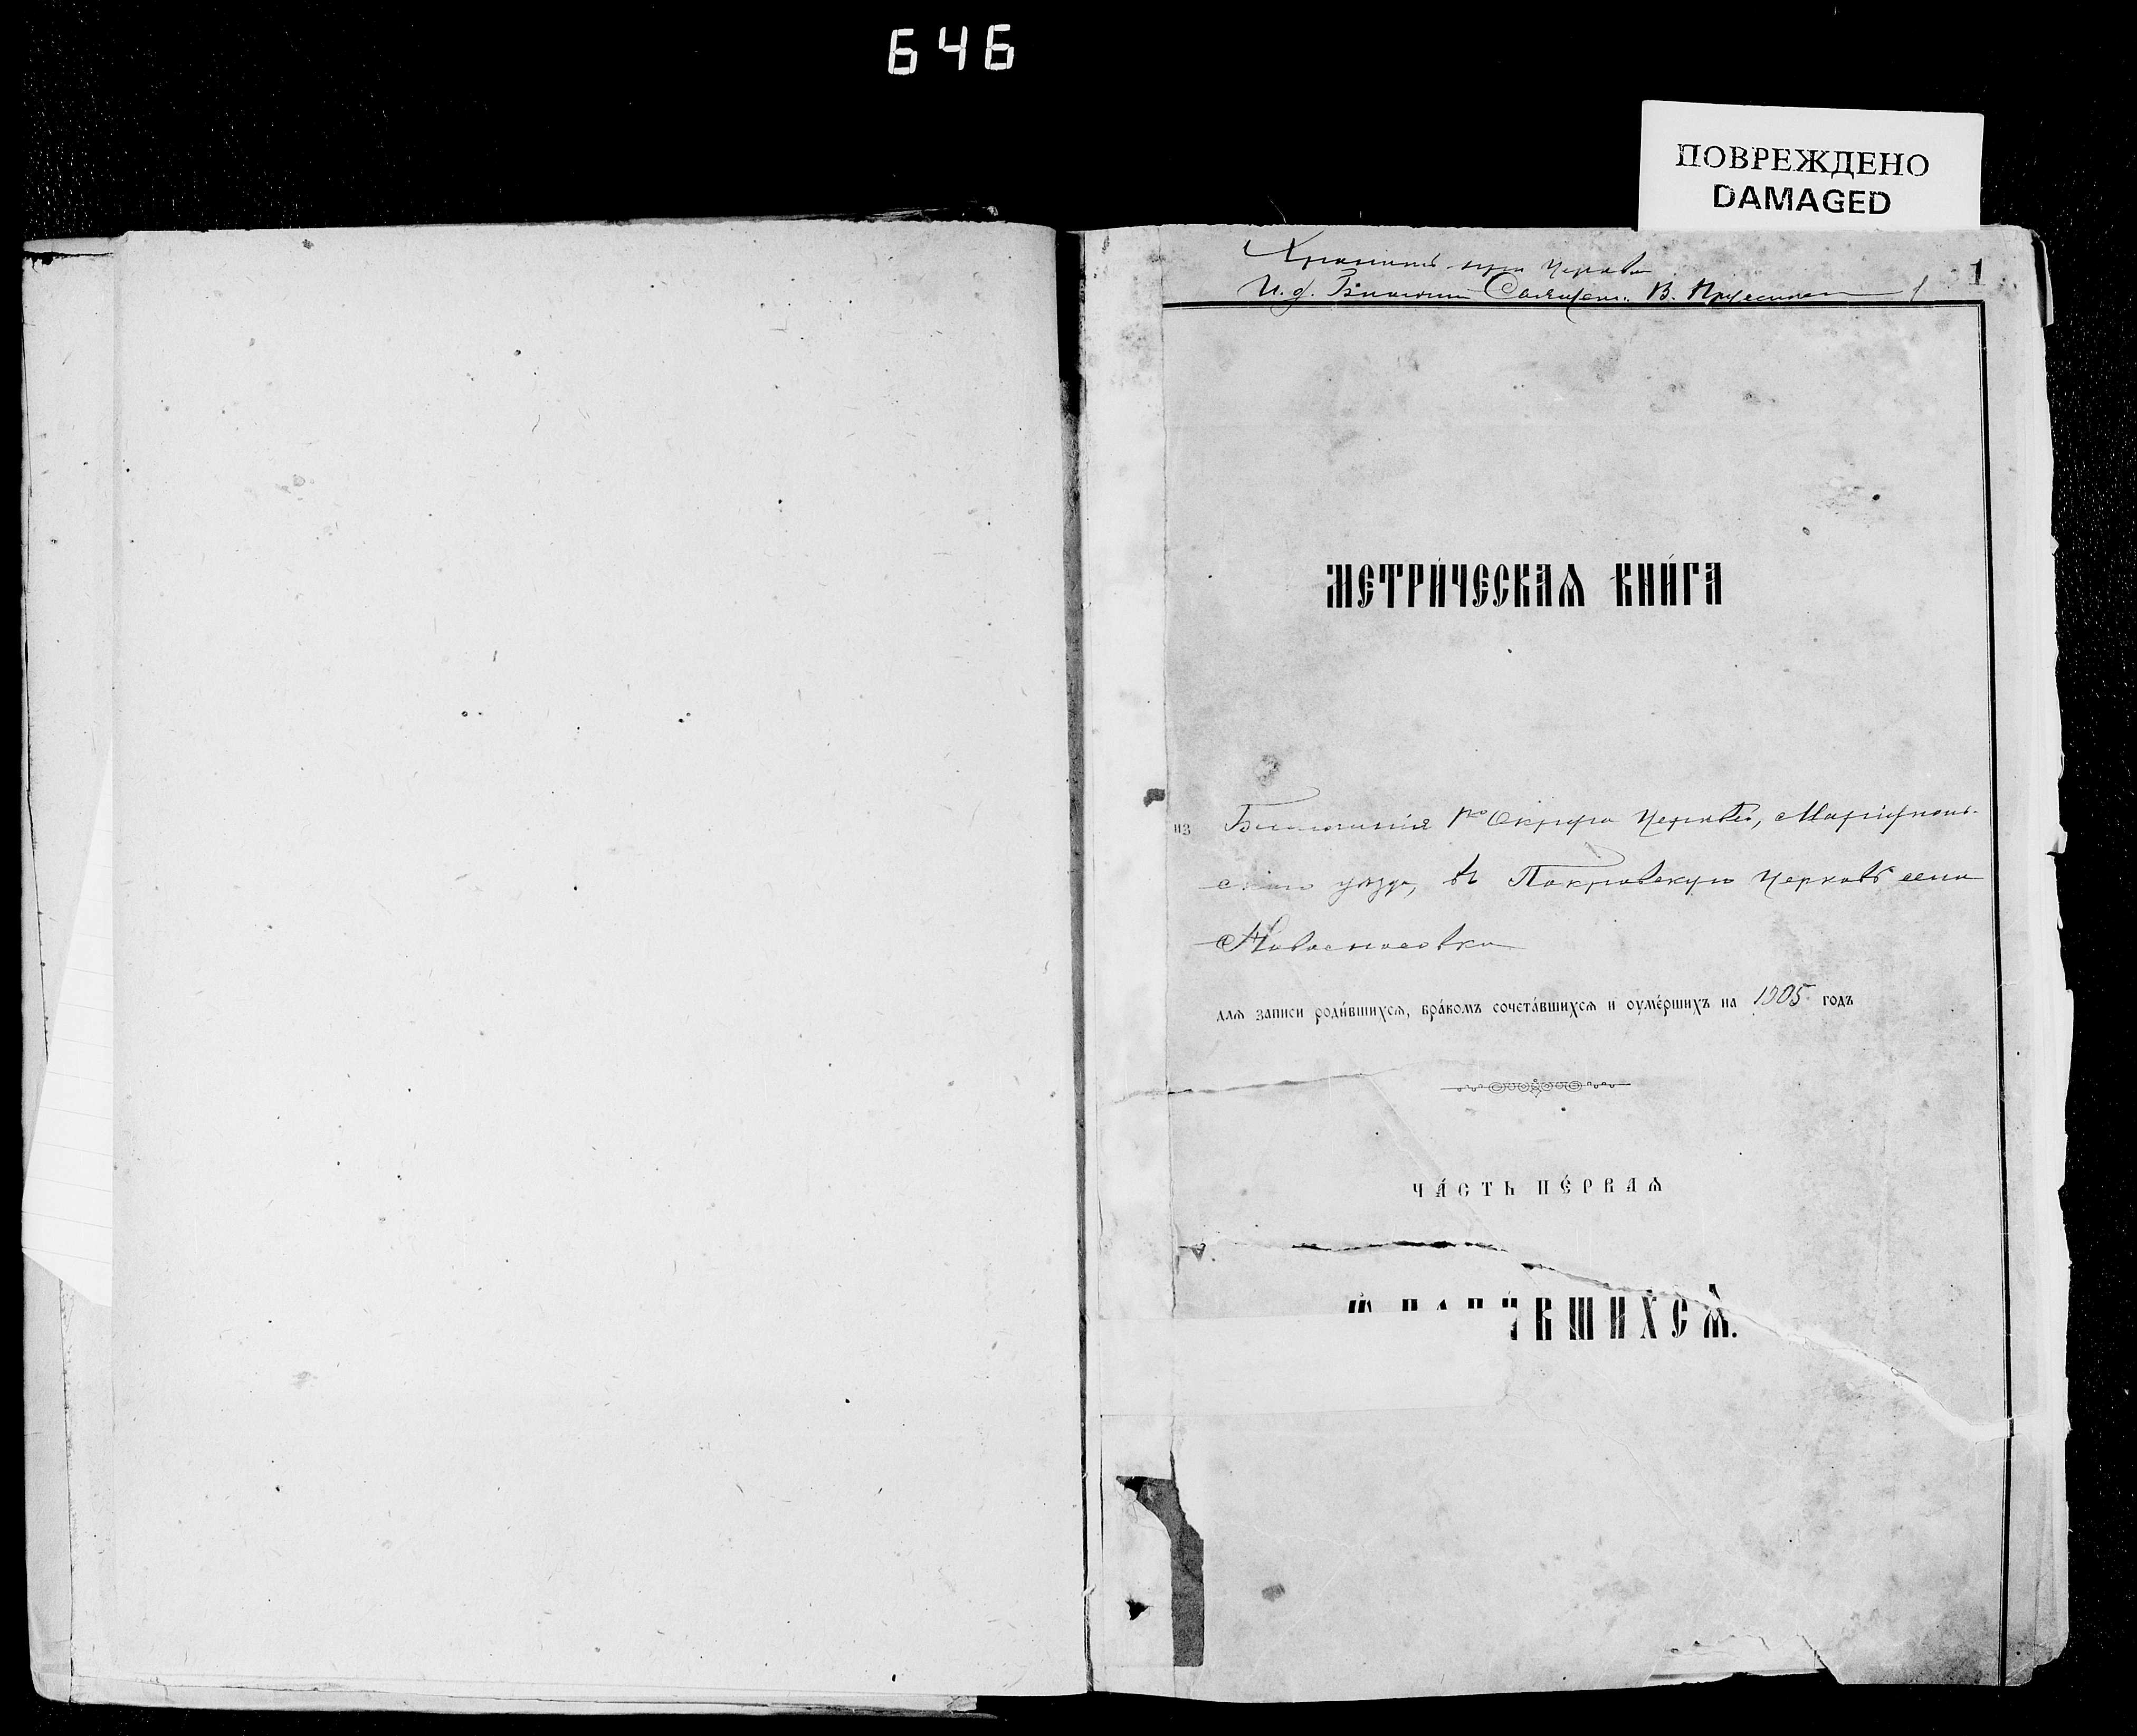 646
ПОВРЕЖДЕНО
DAMAGED
Хранить при Церкви
И. д. Благочин. Священ. В.
1
МЕТРИ́ЧЕСКАѦ КНИ́ГА
из Благочинія 1го Округа Церквей, Маріуполь-
скаго уѣзда, въ Покровскую Церковь села
Новоспасовки
длѧ записи роди́вшихсѧ, бра́комъ сочета́вшихсѧ и оуме́ршихъ на 1905 годъ
ЧА́СТЬ ПЕ́РВАѦ
Ѡ РОДИ́ВШИХСѦ.